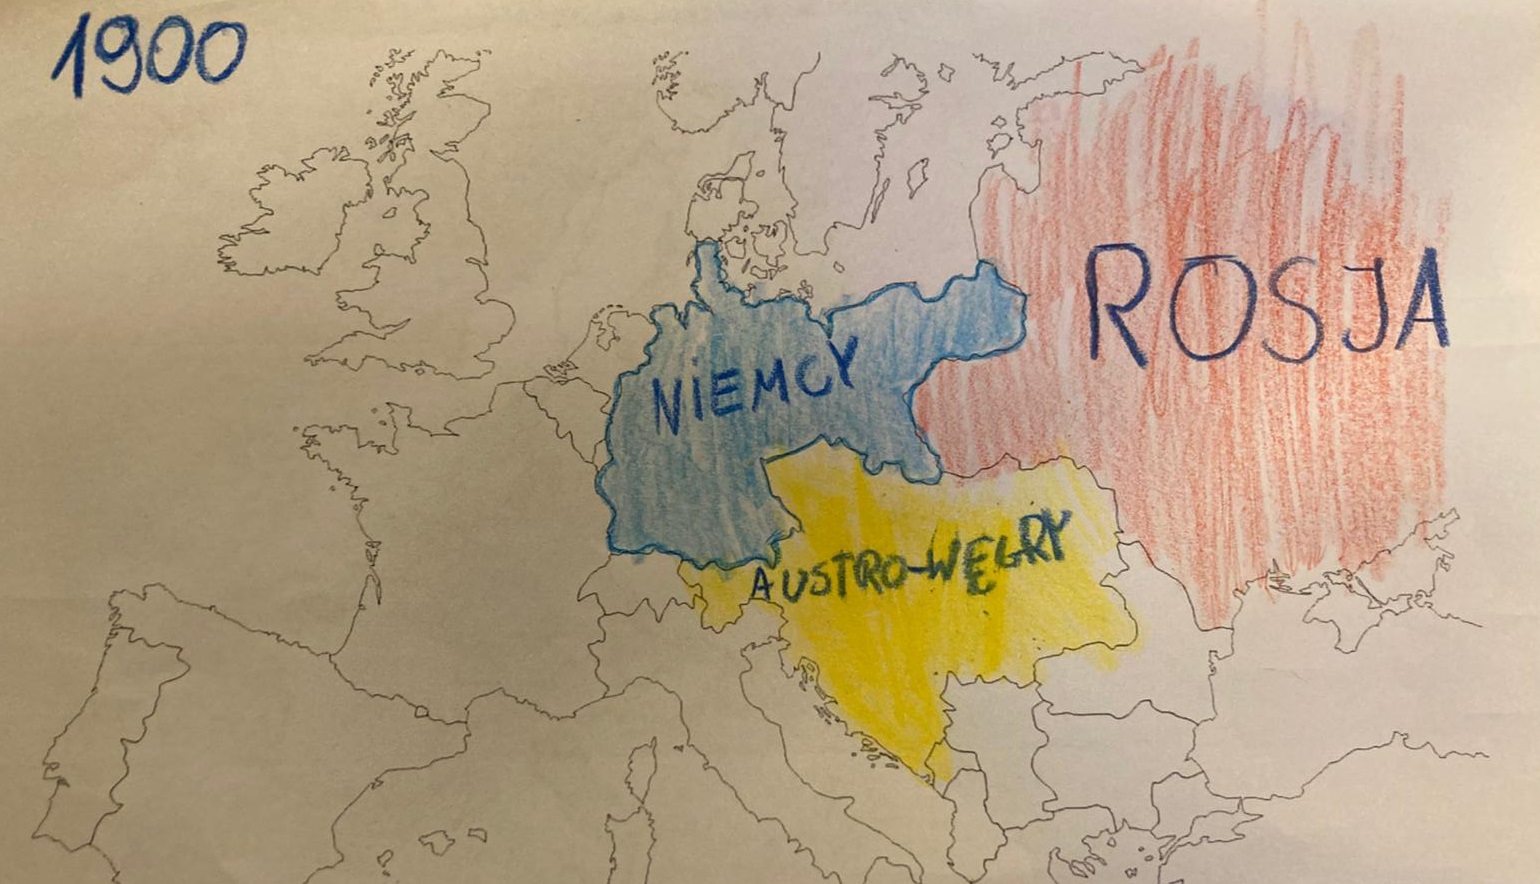 1900
ROSJA
NIEMCY
AUSTRO-WĘGRY